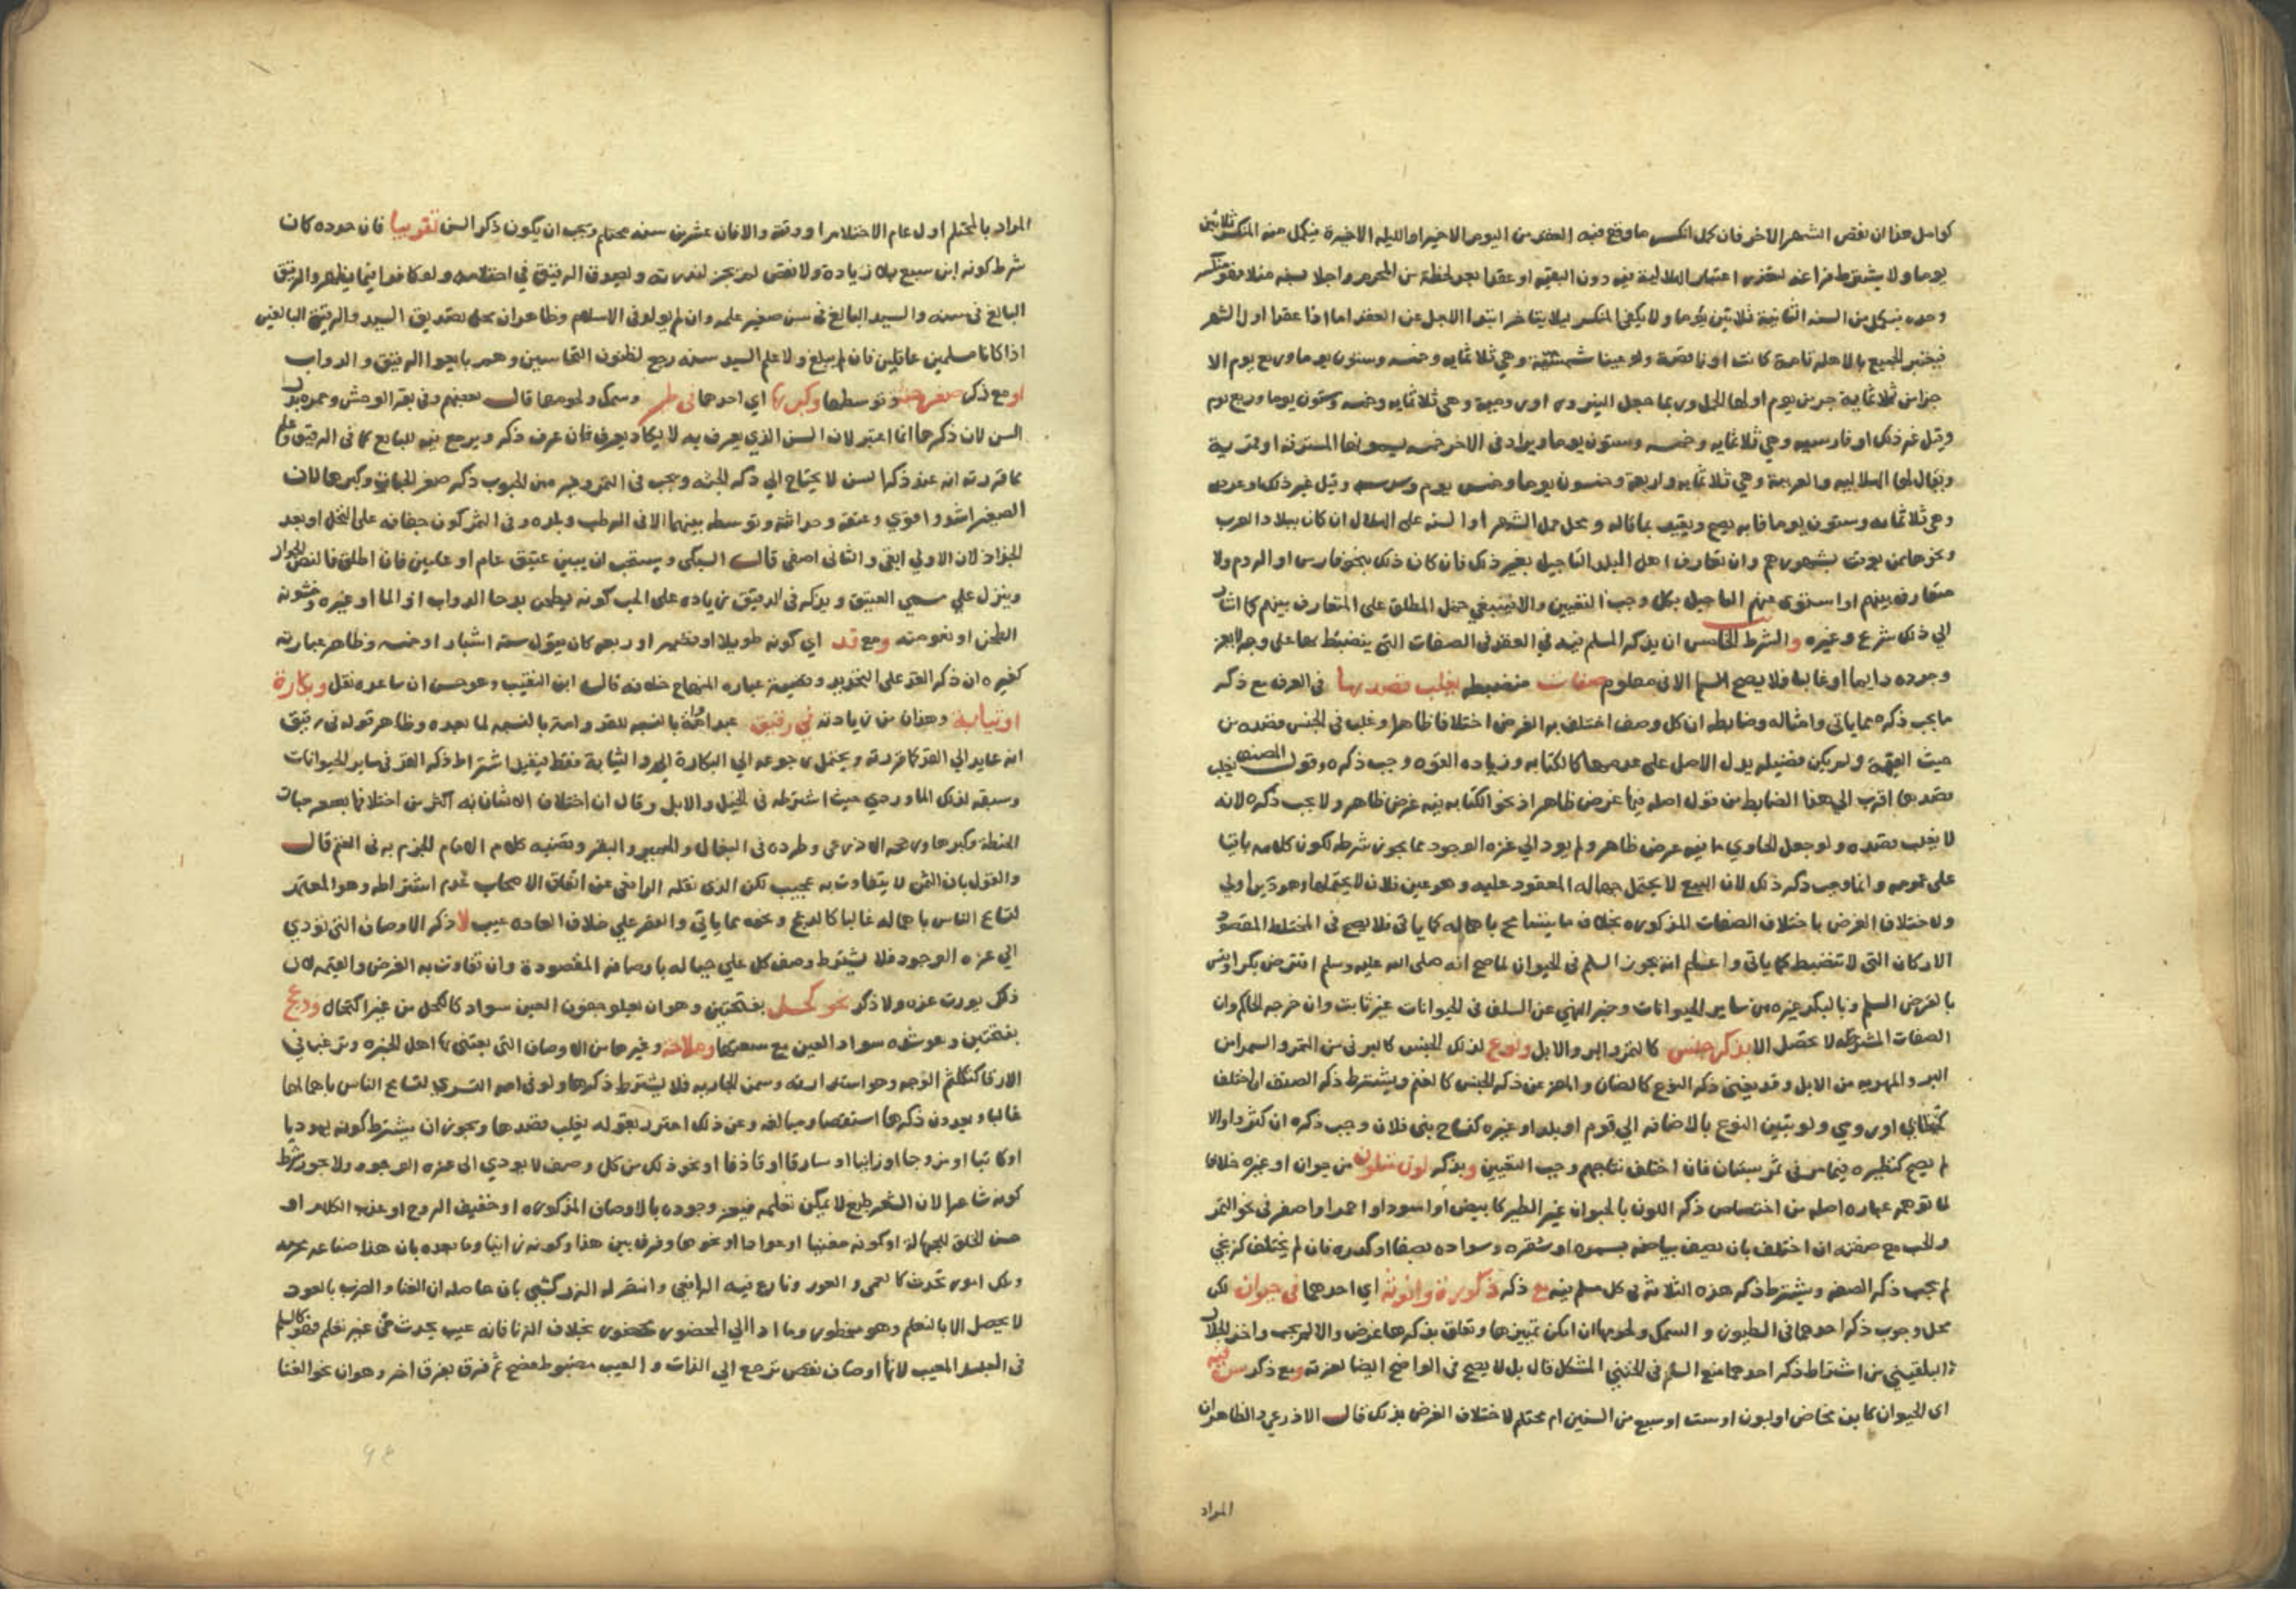 كوامل هذا ان نقص الشهر الاخر فان كمل انكسر ما وقع فيه العقد من اليوم الاخير او الليلة الاخيرة فيكمل منه المنكسر ثلاثين
يوما ولا يشترط اعتبار الهلالية فيه دون البقية او عقدا بعد لحظة من المحرم واجلا بسنة مثلا فهو منكسر
وحده فيكمل من السنة الثانية ثلاثين يوما ولا يكفي المنكسر ليلا يتاخر ابتدا الاجل عن العقد اما اذا عقدا اول الشهر
فيعتبر الجميع بالاهلة تامة كانت او ناقصة ولو عينا شمسية وهي ثلاثمايه وخمسه وستون يوما وربع يوم الا
جزا من ثلاثماية جزء من يوم اولها الحمل وربما جعل النيروز او رومية وهي ثلاثمايه وخمسه وستون يوما وربع يوم
وقيل غير ذلك او فارسيه وهي ثلاثمايه وخمسه وستون يوما ويزاد في الاخر خمسه يسمونها المسترقه او قمرية
ويقال لها الهلاليه والعربية وهي ثلاثمايه واربعة وخمسون يوما وخمس يوم وسدسه وقيل غير ذلك او عدديه
وهي ثلاثمايه وستون يوما فانه يصح ويتقيد بما قاله ومحل حمل الشهر او السنه على الهلال ان كان ببلاد العرب
ونحوها ممن يوقت بشهورهم وان تعارف اهل البلد التاجيل بغير ذلك فان كان ذلك بنحو فارس او الروم ولا
متعارف بينهم او استوى عندهم التاجيل بكل وجب التعيين والا فينبغي حمل المطلق على المتعارف بينهم كما اشار
الي ذلك شرح وغيره والشرط الخامس ان يذكر المسلم فيه في العقد في الصفات التي ينضبط بها على وجه لا يعز
وجوده دايما او غالبا فلا يصح السلم الا في معلوم صفات منضبطه يغلب قصدها في العرف مع ذكر
ما يجب ذكره مما ياتي وامثاله وضابطه ان كل وصف اختلف به الغرض اختلافا ظاهرا وغلب في الجنس قصده من
حيث القيمة ولم يكن فضيلة يدل الاصل على عدمها كالكتابه وزياده القوه وجب ذكره وقول المصنف يغلب
قصدها اقرب الي هذا الضابط من قول اصله فيها غرض ظاهر اذ نحو الكتابه فيه غرض ظاهر ولا يجب ذكره لانه
لا يغلب قصده ولو جعل الحاوي ما فيه غرض ظاهر ولم يود الي عزه الوجود مما يجوز شرطه لكون كلامه باقيا
على عمومه وانما وجب ذكر ذلك لان البيع لا يحتمل جهالة المعقود عليه وهو عين فلان لا يحتملها وهو دين اولي
ولاختلاف الغرض باختلاف الصفات المذكوره بخلاف ما يتسامح باهماله كما ياتي فلا يصح في المختلط المقصود
الاركان التي لا تنضبط كما ياتي واعلم انه يجوز السلم في الحيوان لما صح انه صلى الله عليه وسلم اقترض بكرا وقيس
بالقرض السلم وبالبكر غيره من ساير الحيوانات وخبر النهي عن السلف في الحيوانات غير ثابت وان خرجه الحاكم وان
الصفات المشترطه لا تحصل الا بذكر جنس كالتمر والبر والابل ونوع لذلك الجنس كالبرني من التمر والسمرا من
البر والمهريه من الابل وقد يغني ذكر النوع كالضان والمعز عن ذكر الجنس كالغنم ويشترط ذكر الصنف ان اختلف
كخطاي او رومي ولو بتبين النوع بالاضافه الي قوم او بلد او غيره كنتاج بني فلان وجب ذكره ان كثر والا
لم يصح كنظيره فيما مر في ثمر بستان فان اختلف نتاجهم وجب التعيين ويذكر لون متلون من حيوان او غيره خلافا
لما توهمه عباره اصله من اختصاص ذكر اللون بالحيوان غير الطير كابيض او اسود او احمر او اصفر في نحو التمر
والحب مع صفته ان اختلف بان يصف بياضه بسمره او شقره وسواده بصفا او كدره فان لم يختلف كزنجي
لم يجب ذكر الصفه ويشترط ذكر هذه الثلاثه في كل مسلم فيه مع ذكر ذكورة وانوثة اي احدهما في حيوان لكن
محل وجوب ذكر احدهما في الطيور والسمك ولحومها ان امكن تمييزها وتعلق بذكرها غرض والا لم يجب واخذ الجلال
البلقيني من اشتراط ذكر احدهما منع السلم في الخنثي المشكل قال بل لا يصح في الواضح ايضا لعزته ومع ذكر سن فيه
اي الحيوان كابن مخاض او لبون او ست او سبع من السنين ام محتلم لاختلاف الغرض بذلك قال الاذرعي والظاهر ان
المراد
المراد بالمحتلم اول عام الاحتلام او وقته والا فابن عشرين سنه محتلم ويجب ان يكون ذكر السن تقريبا فان حدده كان
شرط كونه ابن سبع بلا زيادة ولا نقص لم يجز لندرته ويصدق الرقيق في احتلامه ولو كافرا فيما يظهر والرقيق
البالغ في سنه والسيد البالغ في سن صغير علمه وان لم يولد في الاسلام وظاهر ان محل تصديق السيد والرقيق البالغين
اذا كانا مسلمين عاقلين فان لم يبلغ ولا علم السيد سنه رجع لظنون النخاسين وهم بايعوا الرقيق والدواب
او مع ذكر صغر جثة وتوسطها وكبرها اي احدهما في طير وسمك ولحومها قال بعضهم وفي بقر الوحش وحمره بدل
السن لان ذكرها انما اعتبر لان السن الذي يعرف به لا يكاد يعرف فان عرف ذكر ويرجع فيه للبايع كما في الرقيق وعلم
مما قررته انه عند ذكر السن لا يحتاج الي ذكر الجثه ويجب في التمر وغيره من الحبوب ذكر صغر الحبات وكبرها لان
الصغير اشد واقوي وعتقه وحداثته وتوسطه بينهما الا في الرطب وبلده وفي التمر كون جفافه على النخل او بعد
الجذاذ لان الاولي ابقي والثاني اصفى قال السبكي ويستحب ان يبين عتيق عام او عامين فان اطلق فالنص الجواز
وينزل علي مسمي العتيق ويذكر في الدقيق زياده على الحب كونه يطحن برحا الدواب او الما او غيره وخشونه
الطحن او نعومته ومع قد اي كونه طويلا او قصيرا او ربعه كان يقول ستة اشبار او خمسه وظاهر عبارته
كغيره ان ذكر القد على التحديد وقضية عباره المنهاج خلافه قال ابن النقيب وهو حسن ان ساعده نقل وبكارة
او ثيابة وهذان من زيادته في رقيق عبد او امة بالنسبه للقد وامة بالنسبه لما بعده وظاهر قوله في رقيق
انه عايد الي القد كما قررته ويحتمل رجوعه الي البكارة والثيابة فقط فيفيد اشتراط ذكر القد في ساير الحيوانات
وسبقه لذلك الماوردي حيث اشترطه في الخيل والابل وقال ان اختلاف الاثمان به اكثر من اختلافها بصغر حبات
الحنطة وكبرها ورجحه الاذرعي وطرده في البغال والحمير والبقر وقضيه كلام الامام الجزم به في الغنم قال
والقول بان الثمن لا يتفاوت به عجيب لكن الذي نقله الرافعي عن اتفاق الاصحاب عدم اشتراطه وهو المعتمد
لتسامح الناس باهماله غالبا كالدعج ونحوه مما ياتي والعقر علي خلاف العاده عيب لا ذكر الاوصاف التي تؤدي
الي عزه الوجود فلا يشترط وصف كل علي حياله باوصافه المقصودة وان تفاوت به الغرض والقيمه لان
ذلك يورث عزه ولا ذكر نحو كحل بفتحتين وهو ان يعلو جفون العين سواد كالكحل من غير اكتحال ودعج
بفتحتين وهو شده سواد العين مع سعتها وملاحة وغيرها من الاوصاف التي يعتني بها اهل الخبره وترغب في
الارقا كتكلثم الوجه وهو استدارته وسمن الجاريه فلا يشترط ذكرها ولو في امه التسري لتسامح الناس باهمالها
غالبا ويعدون ذكرها استقصا ومبالغه وعن ذلك احترز بقوله يغلب قصدها ويجوز ان يشترط كونه يهوديا
او كاتبا او مزوجا او زانيا او سارقا او قاذفا او نحو ذلك من كل وصف لا يودي الي عزه الوجود ولا يجوز شرط
كونه شاعرا لان الشعر طبع لا يمكن تعلمه فيعز وجوده بالاوصاف المذكوره او خفيف الروح او عذب الكلام او
حسن الخلق للجهالة او كونه مغنيا او عوادا او نحوها وفرق بين هذا وكونه زانيا وما بعده بان هذا صناعه محرمه
وتلك امور تحدث كالعمي والعور ونازع فيه الرافعي وانتصر له الزركشي بان حاصله ان الغنا والضرب بالعود
لا يحصل الا بالتعلم وهو محظور وما ادا الي المحظور محظور بخلاف الزنا فانه عيب يحدث من غير تعلم فهو كالسلم
في العبد المعيب لانها اوصاف نقص ترجع الي الذات والعيب مضبوط فصح ثم فرق بفرق اخر وهو ان نحو الغنا